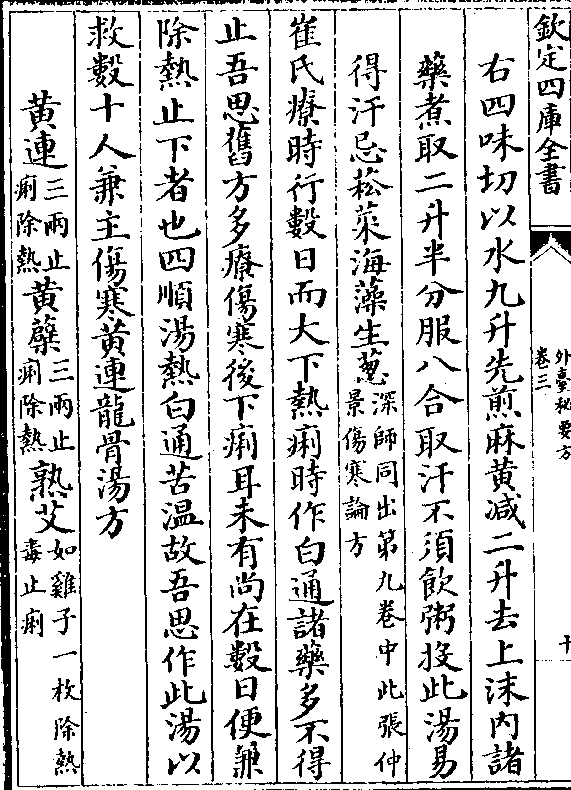 欽定四庫全書
外臺秘要方
卷三
十
右四味切以水九升先煎麻黃減二升去上沫内諸
藥煮取二升半分服八合取汗不須飲粥投此湯易
得汗忌菘菜海藻生葱深師同出第九卷中此張仲景傷寒論方
崔氏療時行數日而大下熱痢時作白通諸藥多不得
止吾思舊方多療傷寒後下痢耳未有尚在數日便兼
除熱止下者也四順湯熱白通苦温故吾思作此湯以
救數十人兼主傷寒黃連龍骨湯方
黃連三兩止痢除熱黃蘗三兩止痢除熱熟艾如雞子一枚除熱毒止痢